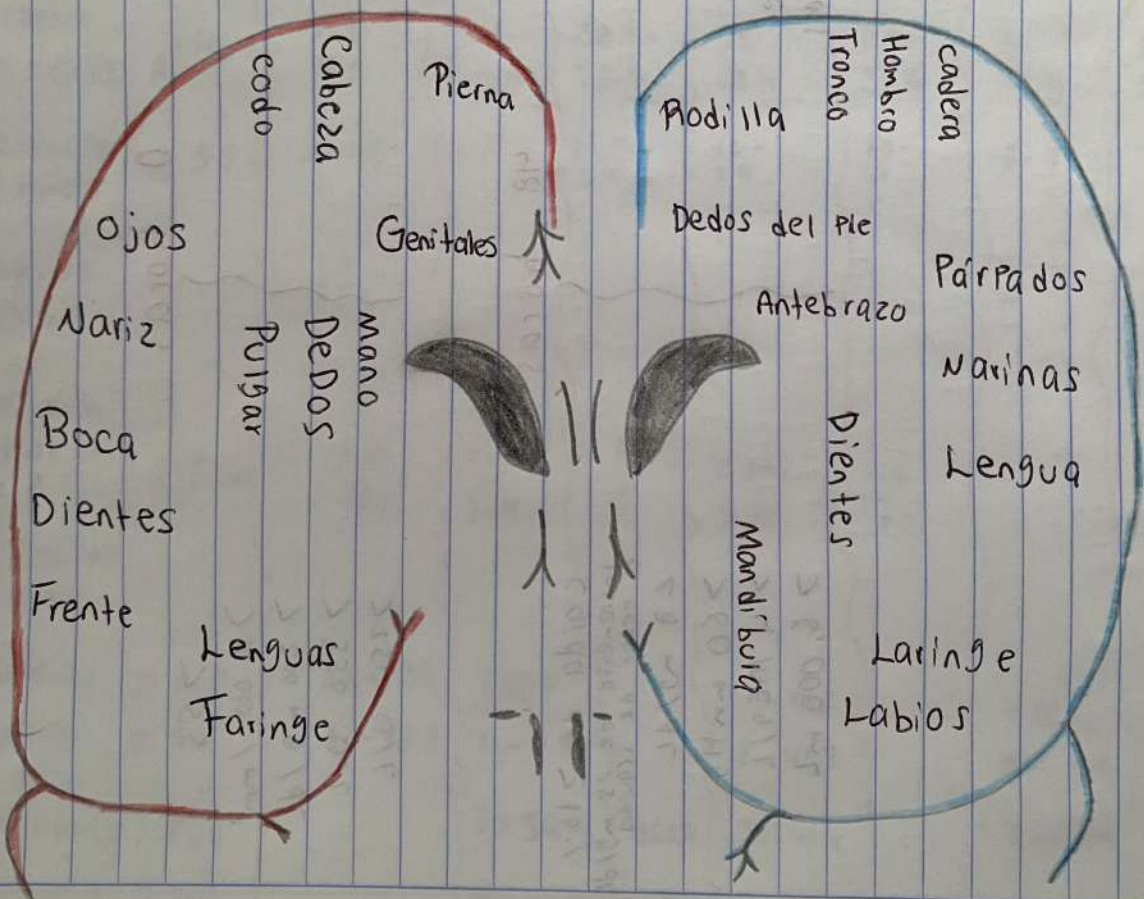 Pierna
Cabeza
codo
Ojos
Genitales
Nariz
Mano
DeDOS
Pulgar
Boca
Dientes
Frente
Lenguas
Faringe
Rodilla
Tronco
Hombro
cadera
Dedos del Pie
Párpados
Antebrazo
Narinas
Dientes
Lengua
Mandíbula
Laringe
Labios